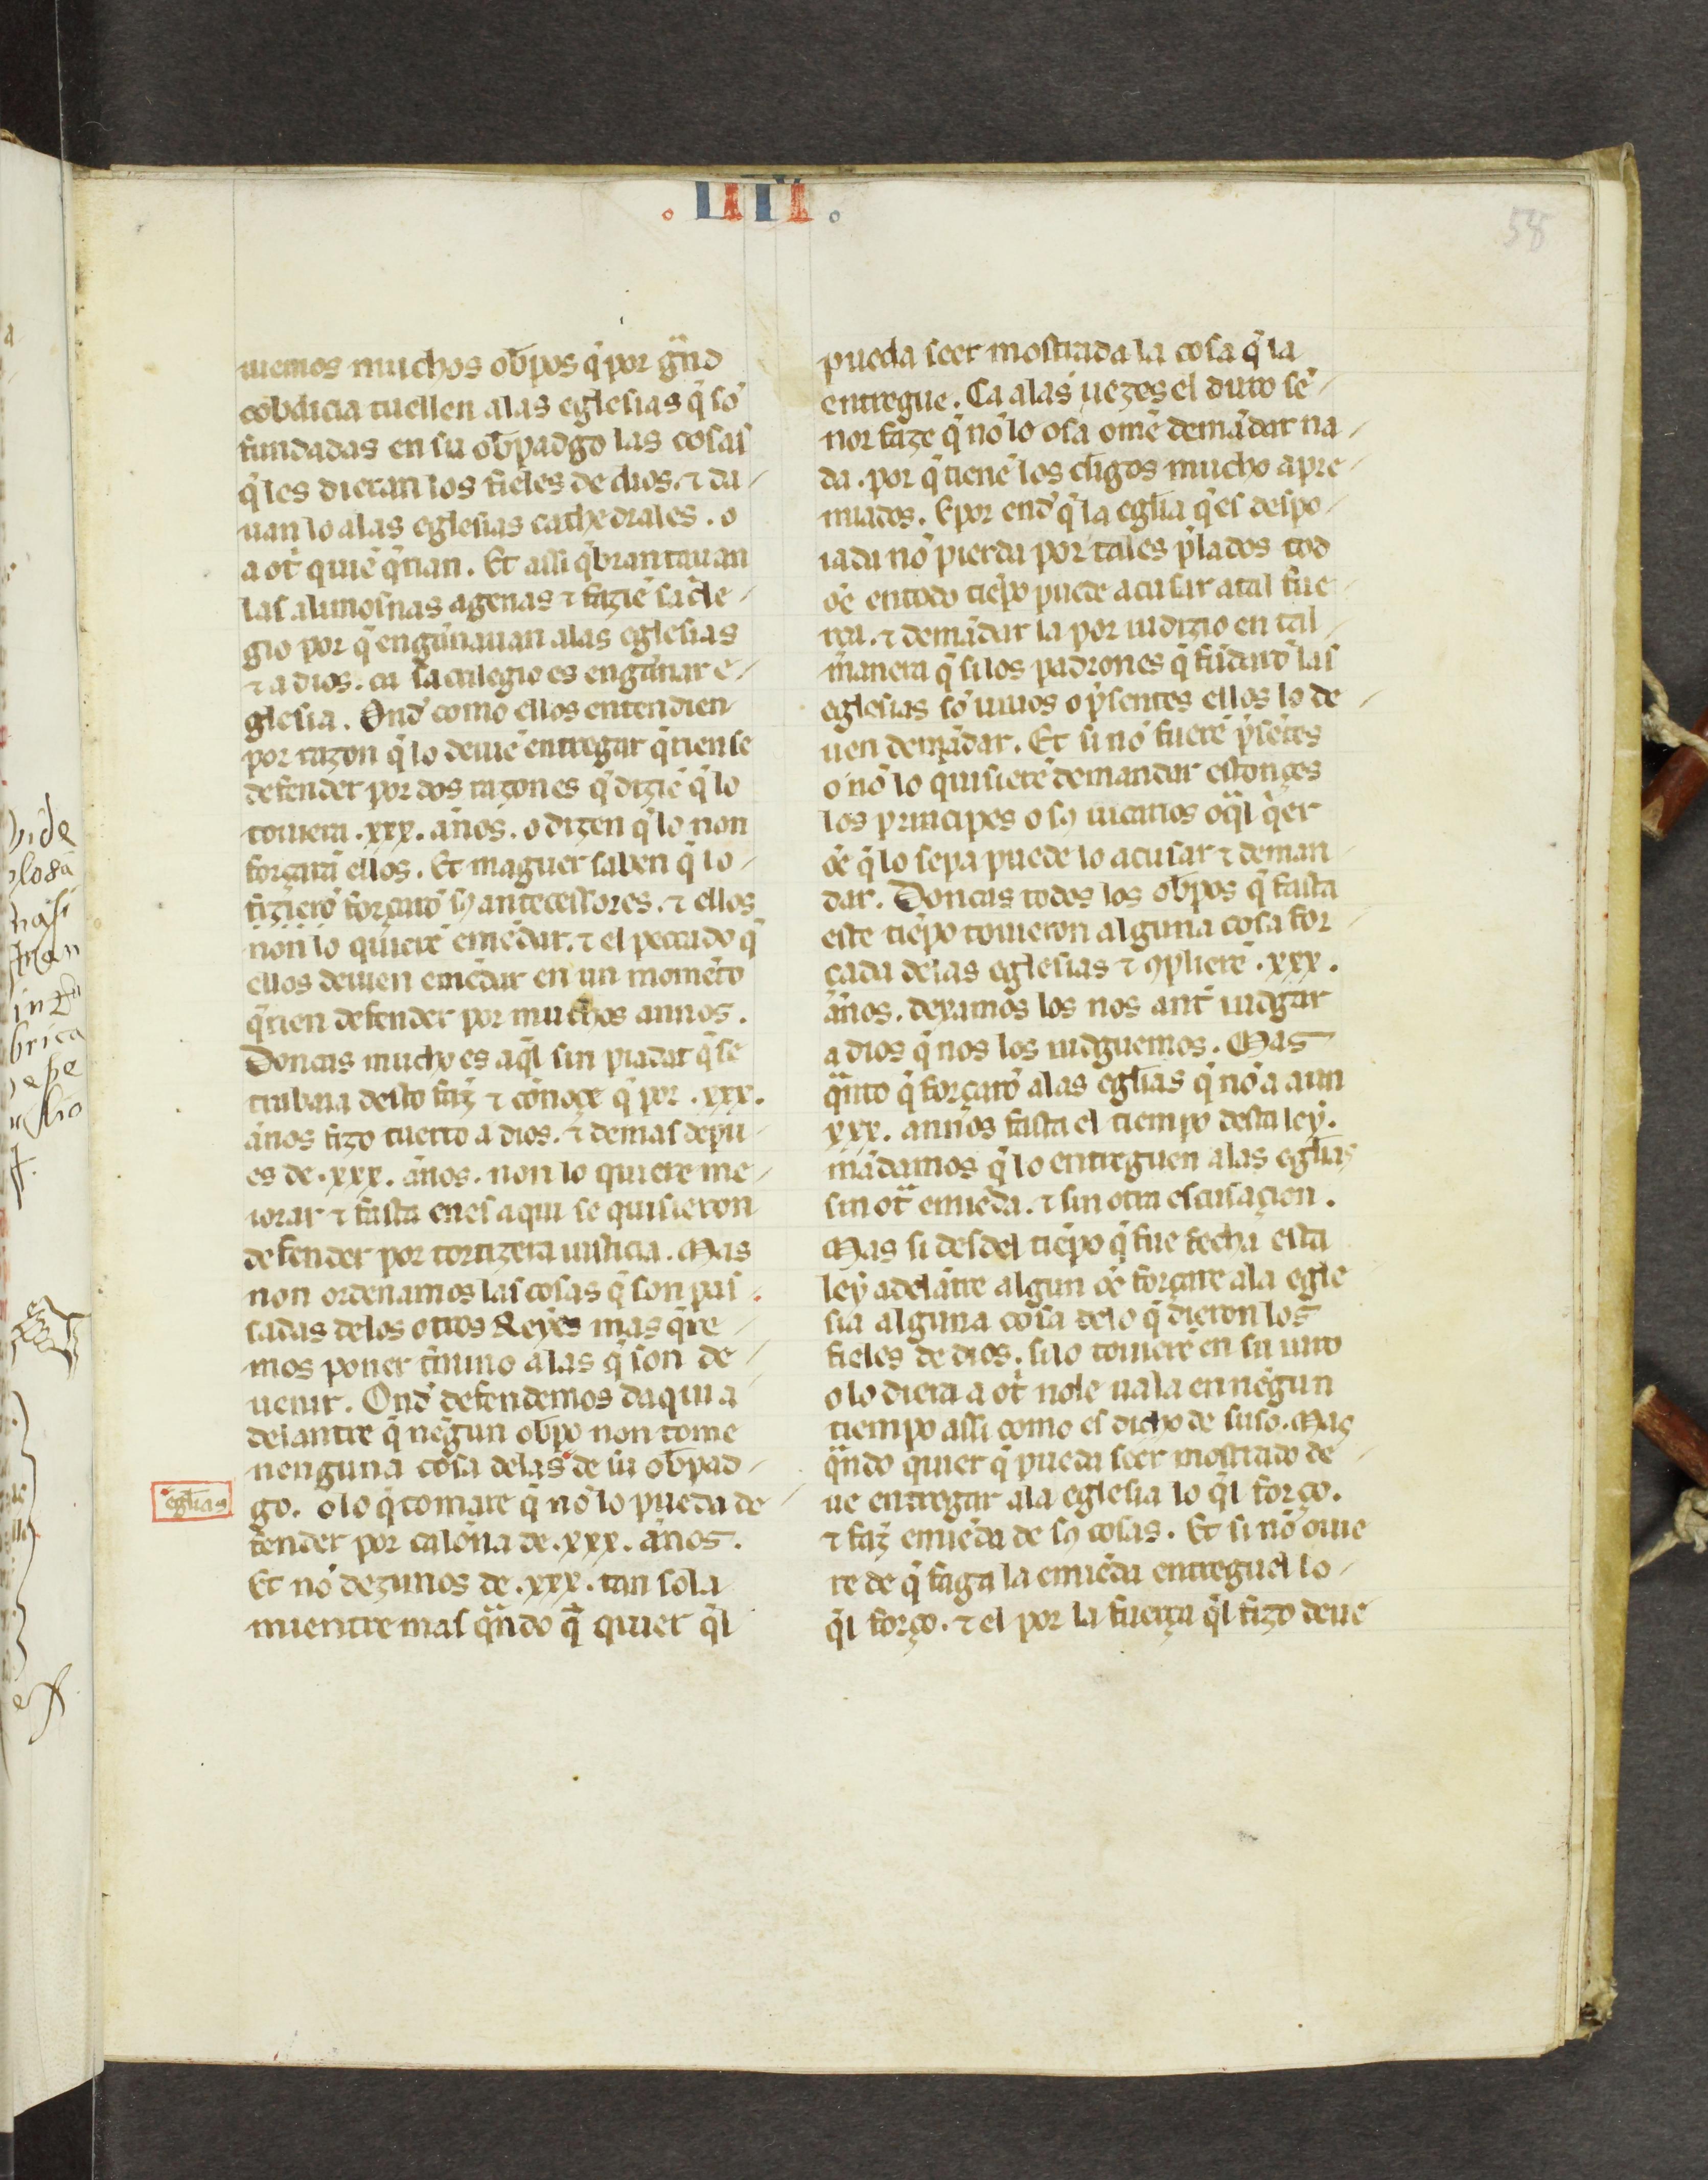 . IIII .
58
uemos muchos obpos q̃ por gñd
cobdicia tuellen alas eglesias q̃ sõ
fundadas en su obpadgo las cosas
q̃ les dieran los fieles de dios. ⁊ da
uan lo alas eglesias cathedrales. o
a ot̃ quiẽ q̃rian. Et assi q̃brantauan
las alimosnas agenas ⁊ faziẽ sac̃le
gio por q̃ engãnauan alas eglesias
⁊ a dios. ca sacrilegio es engãnar e
glesia. Ond̃ como ellos entendien
por razon q̃ lo deuiẽ entregar q̃rien se
defender por dos razones q̃ diziẽ q̃ lo
touiera .xxx. ãnos. o dizen q̃ lo non
forçarã ellos. Et maguer saben q̃ lo
fizierõ forçarõ sꝯ antecessores. ⁊ ellos
non lo quierẽ emẽdar. ⁊ el peccado q̃
ellos deuien emẽdar en un momẽto
q̃rien defender por muchos annos.
Doncas mucho es aq̃l sin piadat q̃ se
trabaia desto faz̃ ⁊ cõnoçe q̃ por .xxx.
ãnos fizo tuerto a dios. ⁊ demas depu
es de .xxx. ãnos. non lo quiere me
iorar ⁊ fasta en es aqui se quisieron
defender por tortizera iusticia. Mas
non ordenamos las cosas q̃ son pas
sadas delos otros Reyes mas q̃re
mos poner t̃mino alas q̃ son de
uenir. Ond̃ defendemos daqui a
delantre q̃ nẽgun obpo non tome
nenguna cosa delas de su obpad
eglias
go. o lo q̃ tomare q̃ nõ lo pueda de
fender por calõna de .xxx. ãnos.
Et nõ dezimos de .xxx. tan sola
mientre mas q̃ndo q̃ quier q̃l
pueda seer mostrada la cosa q̃ la
entregue. Ca alas uezes el duro sẽ
nor faze q̃ nõ lo osa omẽ demãdar na
da. por q̃ tienẽ los cligos mucho apre
miados. E por end̃ q̃ la eglia q̃ es despo
iada nõ pierda por tales p̃lados tod
oẽ en todo tiẽpo puede acusar a tal fue
rça. ⁊ demãdar la por iudizio en tal
manera q̃ si los padrones q̃ fũdarõ las
eglesias sõ uiuos o p̃sentes ellos lo de
uen demãdar. Et si nõ fuerẽ p̃sẽtes
o nõ lo quisierẽ demandar estonçes
los principes o sꝯ uicarios o q̃l q̃er
oẽ q̃ lo sepa puede lo acusar ⁊ deman
dar. Doncas todos los obpos q̃ fasta
este tiẽpo touieron alguna cosa for
çada delas eglesias ⁊ ꝯplierẽ .xxx.
ãnos. dexamos los nos ant̃ iudgar
a dios q̃ nos los iudguemos. Mas
q̃nto q̃ forçarõ alas eglias q̃ nõ a aun
xxx. annos fasta el tiempo desta ley.
mãdamos q̃ lo entreguen alas eglias
sin ot̃ emiẽda. ⁊ sin otra escusaçion.
Mas si desdel tiẽpo q̃ fue fecha esta
ley adelãtre algun oẽ forçare ala egle
sia alguna cosa delo q̃ dieron los
fieles de dios. si lo touierẽ en su iuro
o lo diera a ot̃ nole uala en nẽgun
tiempo assi como es dicho de suso. Mas
q̃ndo quier q̃ pueda seer mostrado de
ue entregar ala eglesia lo q̃l forço.
⁊ faz̃ emiẽda de sꝯ cosas. Et si nõ ouie
re de q̃ faga la emiẽda entreguel lo
q̃l forço. ⁊ el por la fuerça q̃l fizo deue